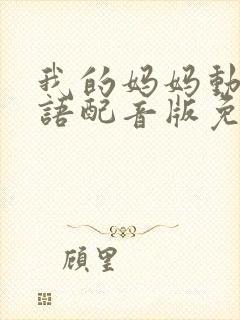 我的妈妈動
語配音版免
顾里